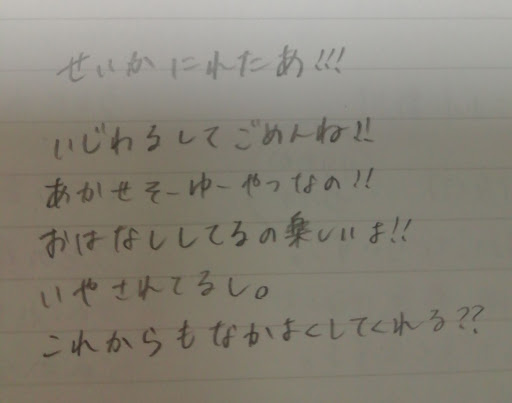 せいかにれたあ!!!
いじわるしてごめんね!!
あかせそーゆーやつなの!!
おはなししてるの楽しいよ!!
いやされてるし。
これからもなかよくしてくれる??